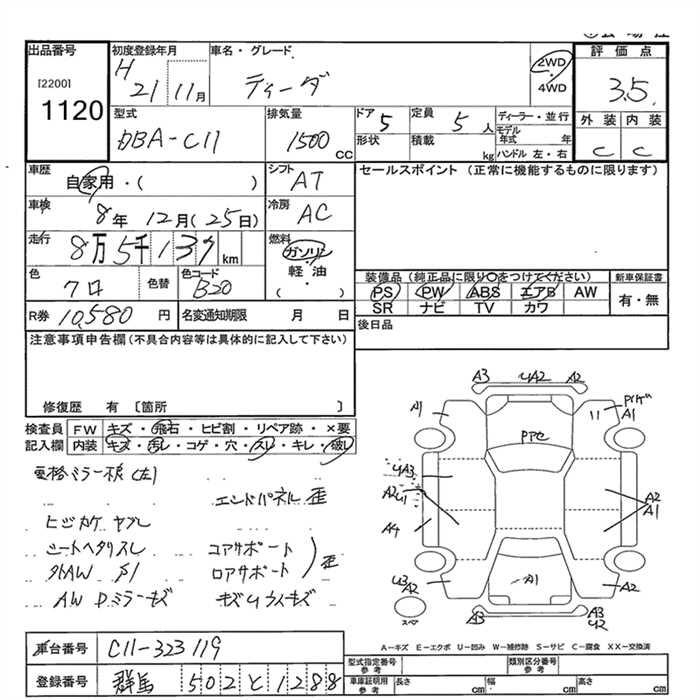 出品番号 初度登録年月 車名・グレード 評価点
[2200] H 21 11月 ティーダ 2WD・4WD 3.5
1120
型式 排気量 ドア 5 定員 5人 ディーラー・並行 外装 内装
DBA-C11 1500CC 形状 積載 kg モデル年式 年 C C
ハンドル 左・右
車歴 自家用・( ) シフト AT セールスポイント (正常に機能するものに限ります)
車検 8年 12月(25日) 冷房 AC
走行 8万5千139km 燃料 ガソリン・軽油 ( )
色 クロ 色替 色コード B20
装備品 (純正品に限り○をつけてください) 新車保証書
PS PW ABS エアB AW 有・無
SR ナビ TV カワ
R券 10,580円 名変通知期限 月 日 後日品
注意事項申告欄(不具合内容等は具体的に記入して下さい)
修復歴 有 〔箇所 〕
検査員 FW キズ・飛石・ヒビ割・リペア跡・×要
記入欄 内装 キズ・汚レ・コゲ・穴・スレ・キレ・破レ
ミラー (左)
エンドパネル 歪
ヒジカケ ヤブレ
シートヘタリスレ コアサポート
外AW ロアサポート 歪
AW Dミラーキズ
A3 UA2 A2
A1 A1
UA3
A2 A2
U1 A1
A4
U3 A1
A2 A2
A3 A3
U2
スペア
A-キズ E-エクボ U-凹み W-補修跡 S-サビ C-腐食 XX-交換済
車台番号 C11-323119
型式指定番号 参考 類別区分番号 参考
登録番号 群馬 502 と 1288
車庫証明用 参考 長さ cm 幅 cm 高さ cm